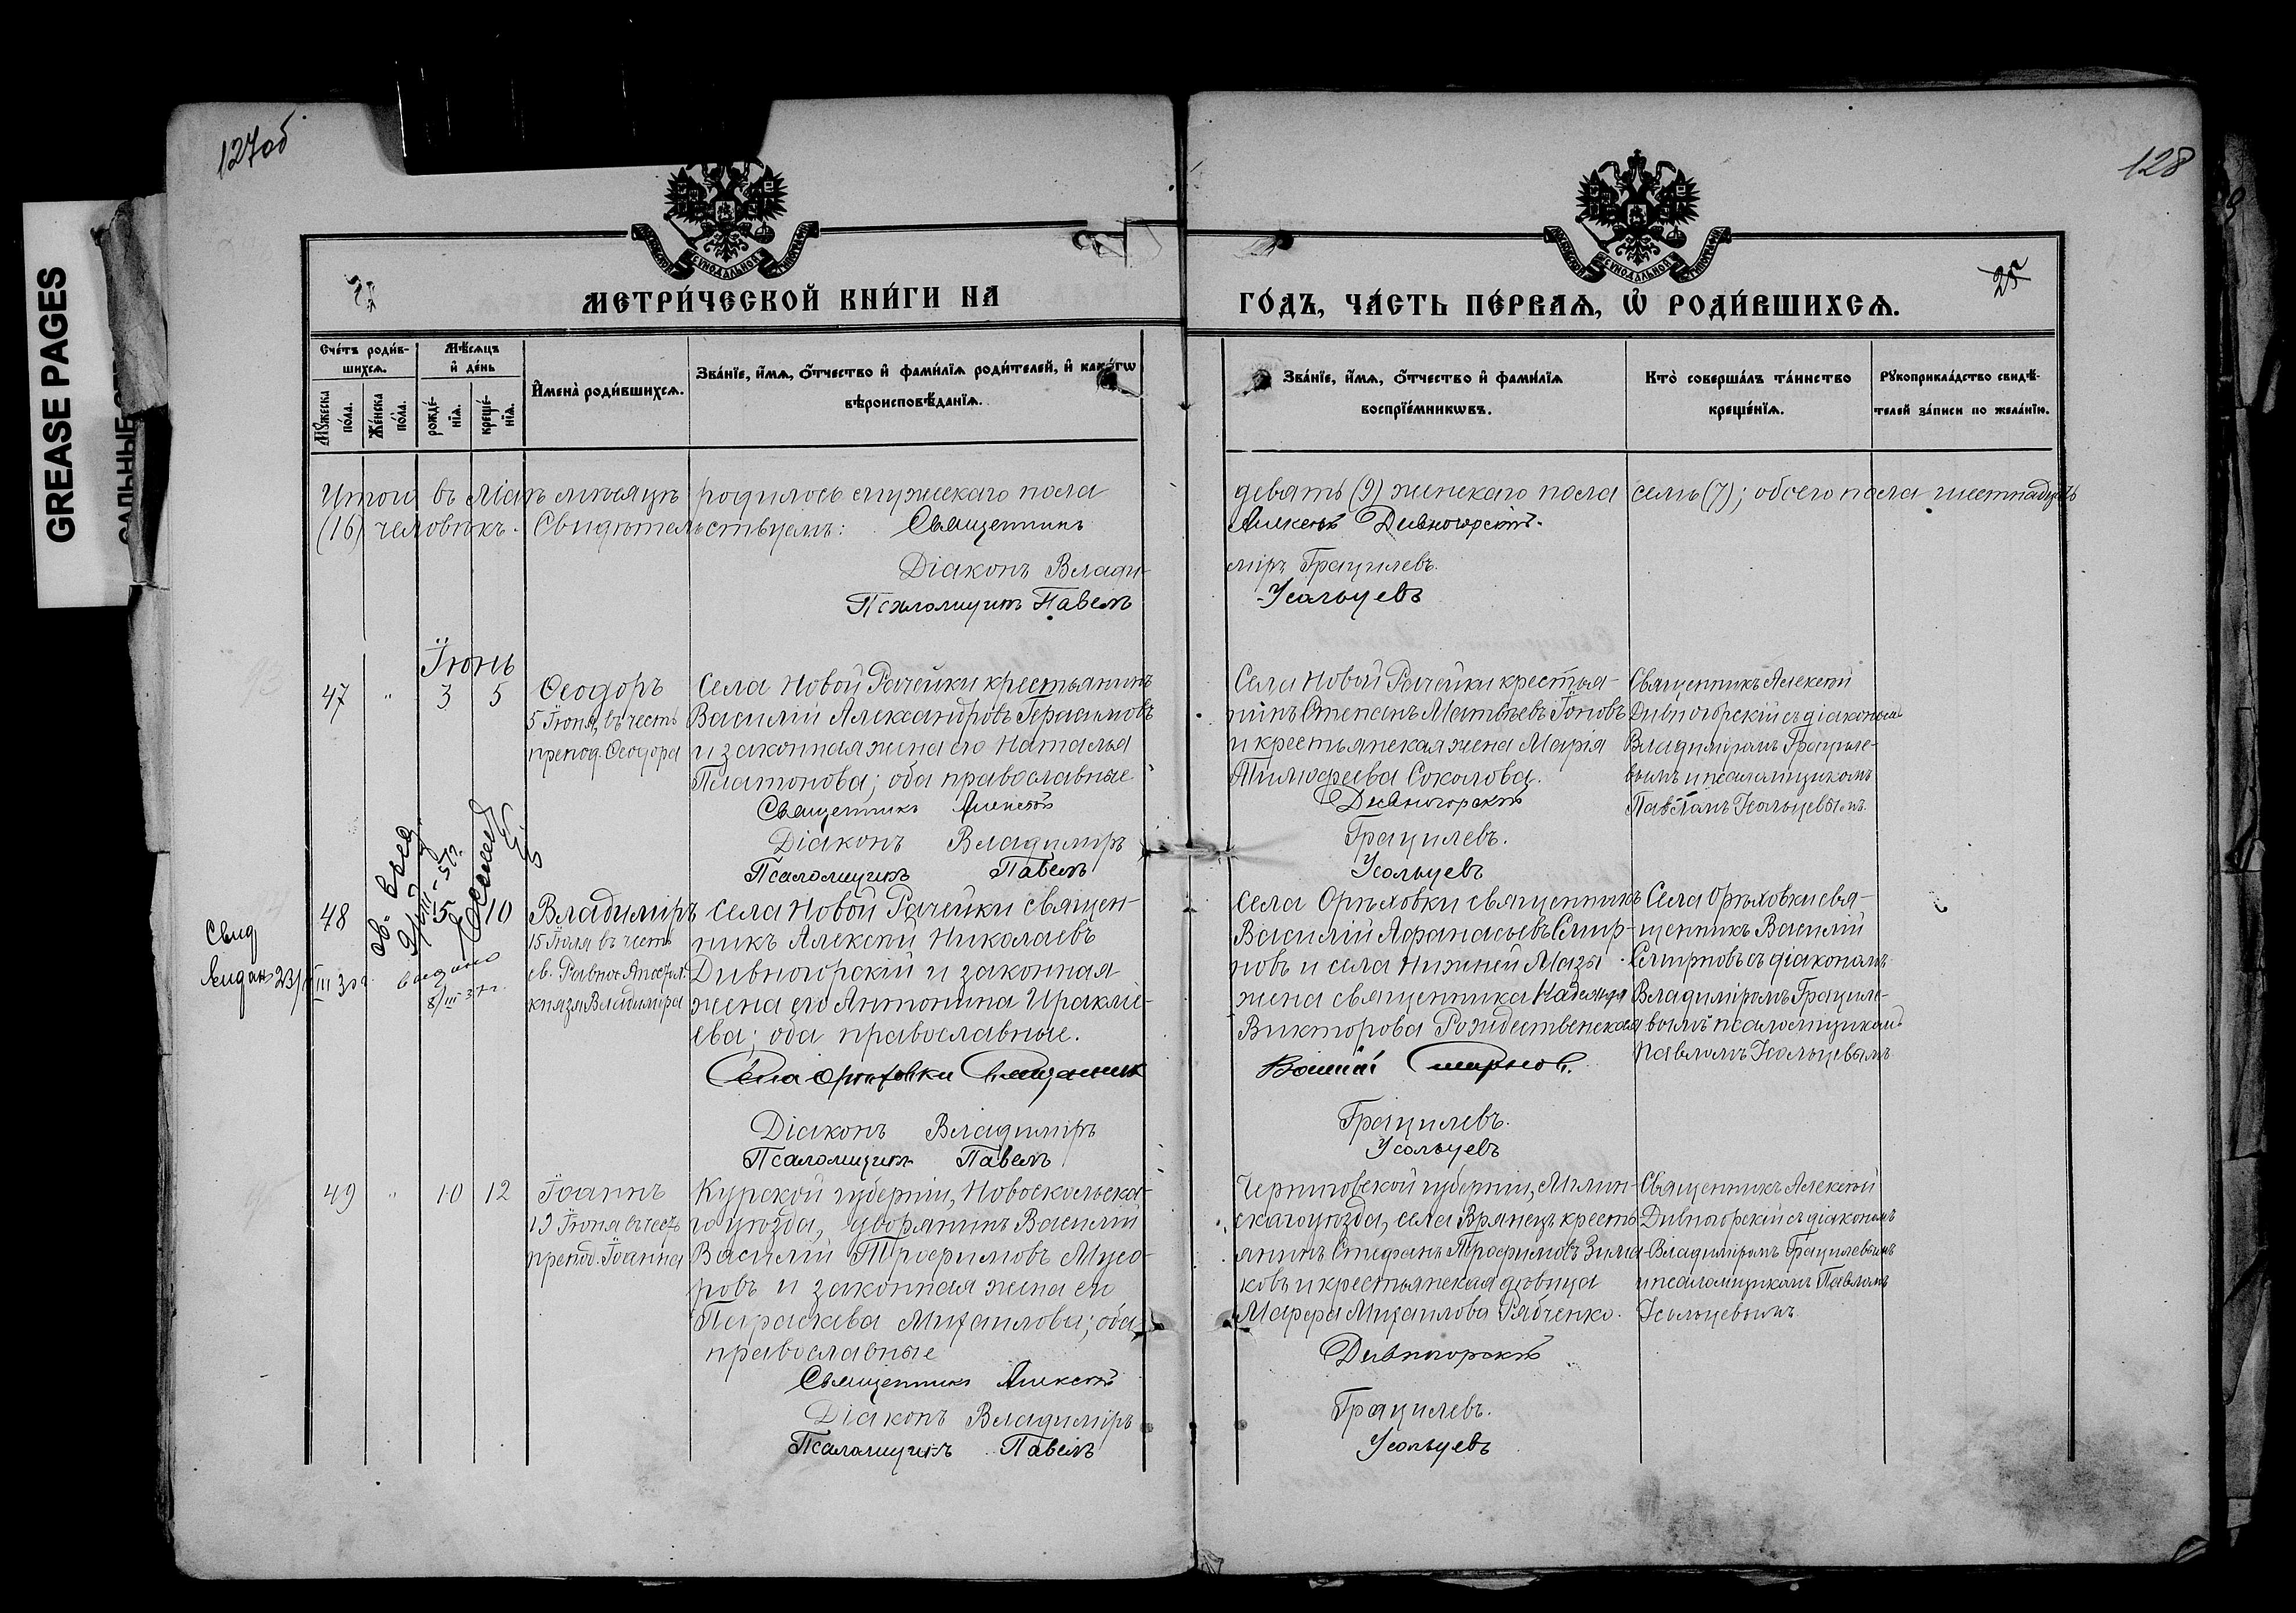 127об
128
GREASE PAGES
25
МЕТРИ́ЧЕСКОЙ КНИ́ГИ НА
ГО́ДЪ, ЧА́СТЬ ПЕ́РВАѦ, Ѡ҆ РОДИ́ВШИХСѦ.
Сче́тъ роди́в-
шихсѧ.
Мѣ́сѧцъ
и҆ де́нь
Мꙋ́жеска
по́ла.
Же́нска
по́ла.
рожде́-
нїѧ.
креще́-
нїѧ.
И҆мена̀ роди́вшихсѧ.
Зва́нїе, и҆́мѧ, ѻ҆́тчество и҆ фами́лїѧ роди́телей, и҆ како́гѡ
вѣроисповѣ́данїѧ.
Зва́нїе, и҆́мѧ, ѻ҆́тчество и҆ фами́лїѧ
воспрїе́мникѡвъ.
Кто̀ соверша́лъ та́инство
креще́нїѧ.
Рꙋкоприкла́дство свидѣ́-
телей за́писи по жела́нїю.
Итого въ Маѣ мѣсяцѣ родилось мужескаго пола
девять (9) женскаго пола семь (7); обоего пола шестнадцать
(16) человѣкъ. Свидѣтельствуемъ: Священникъ
Алексѣй Дивногорскій.
Діаконъ Влади-
міръ Грацилевъ.
Псаломщикъ Павелъ
Усольцевъ
Іюнь
47 " 3 5
Ѳеодоръ
5 Іюня, въ честь
препод. Ѳеодора
Села Новой Рачейки крестьянинъ
Василій Александровъ Герасимовъ
и законная жена его Наталья
Платонова; оба православные
Священникъ Алексѣй
Діаконъ Владиміръ
Псаломщикъ Павелъ
Села Новой Рачейки крестья-
нинъ Степанъ Матвѣевъ Іоновъ
и крестьянская жена Марія
Тимофеева Соколова.
Дивногорскій
Грацилевъ.
Усольцевъ
Священникъ Алексѣй
Дивногорскій съ діакономъ
Владиміромъ Грациле-
вымъ и псаломщикомъ
Павломъ Усольцевымъ.
48 5 10
Свид
выдано
8/III-37г.
Владиміръ
15 Іюля въ честь
св. Равноапостол.
князя Владиміра
Села Новой Рачейки священ-
никъ Алексѣй Николаевъ
Дивногорскій и законная
жена его Антонина Иракліе-
ева; оба православные.
Села Орѣховки Священникъ
Діаконъ Владиміръ
Псаломщикъ Павелъ
Села Орѣховки священникъ
Василій Афанасьевъ Смир-
новъ и села Нижней Мазы
жена священника Надежда
Викторова Рождественская
Василій Смирновъ.
Грацилевъ.
Усольцевъ
Села Орѣховки свя-
щенникъ Василій
Смирновъ съ діакономъ
Владиміромъ Грациле-
вымъ псаломщикомъ
Павломъ Усольцевымъ
49 " 10 12
Іоаннъ
19 Іюня въ честь
препод. Іоанна
Курской губерніи, Новооскольска-
го уѣзда, дворянинъ Василій
Василій Трофимовъ
и законная жена его
Параскева Михаилова; оба
православные
Священникъ Алексѣй
Діаконъ Владиміръ
Псаломщикъ Павелъ
Черниговской губерніи, Мглин-
скаго уѣзда, села Врянецъ кресть-
янинъ Стефанъ Трофимовъ Зима-
ковъ и крестьянская дѣвица
Марфа Михаилова Рябченко.
Дивногорскій
Грацилевъ.
Усольцевъ
Священникъ Алексѣй
Дивногорскій съ діакономъ
Владиміромъ Грацилевымъ
и псаломщикомъ Павломъ
Усольцевымъ